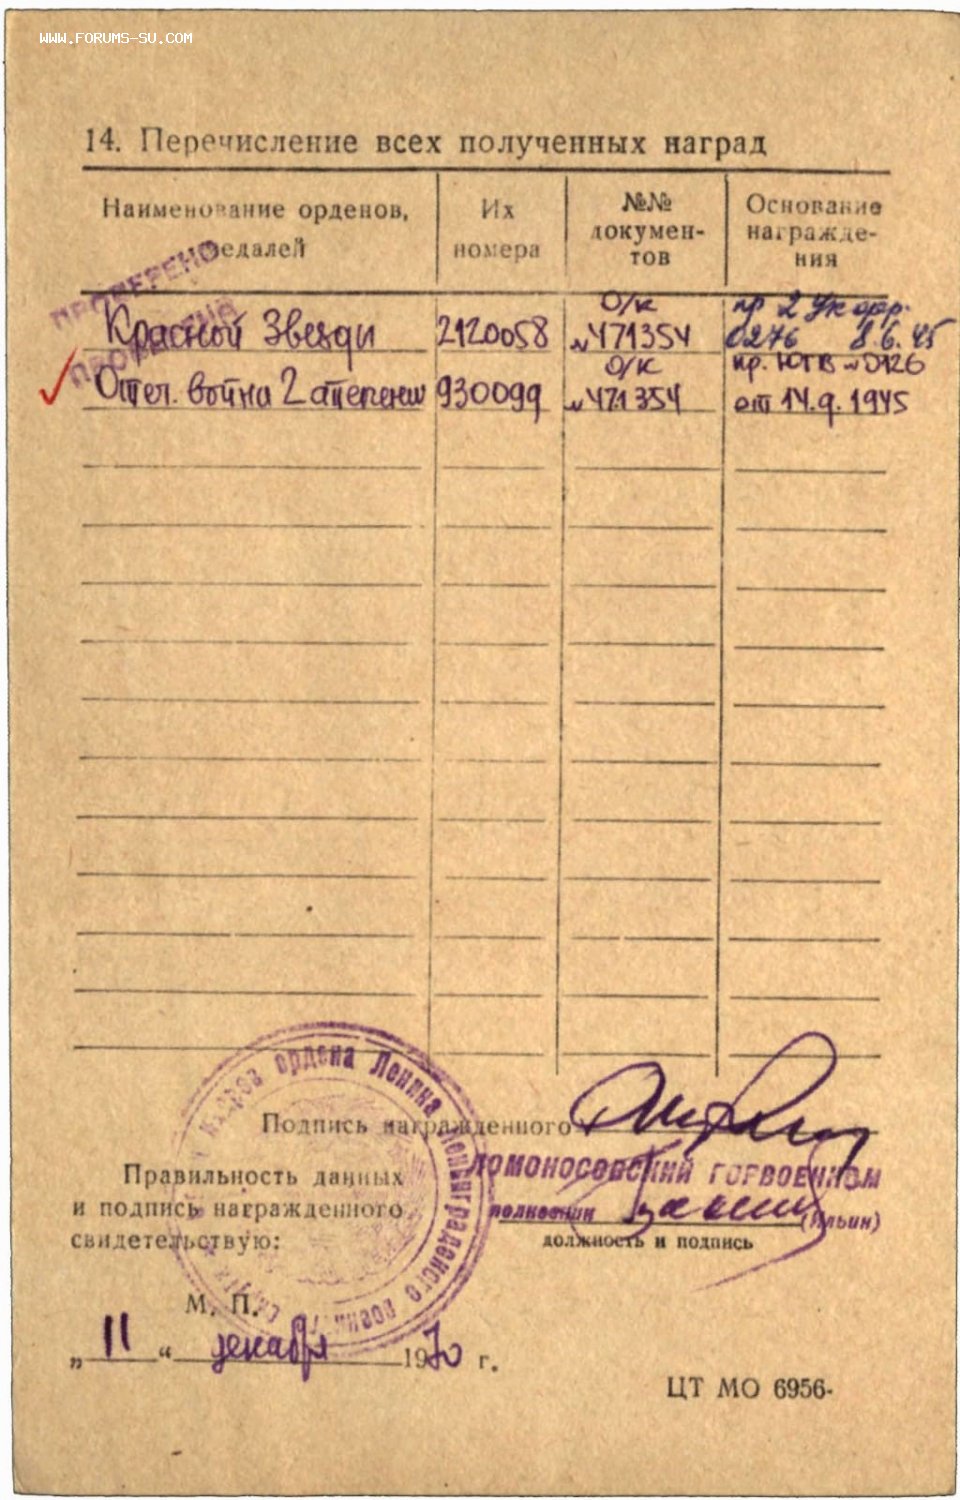 WWW.FORUMS-SU.COM
14. Перечисление всех полученных наград
Наименование орденов, медалей
Их номера
№№ докумен-
тов
Основание
награжде-
ния
ПРОВЕРЕНО
ПРОВЕРЕНО
О/К
пр 2 Ук
Красной Звезды 2120058 №471354 0276 8.6.45
О/К пр. ЮГВ №0126
Отеч. война 2 степени 930099 №471354 от 14.9.1945
Подпись награжденного
ордена Ленина Ленинградского
ЛОМОНОСОВСКИЙ ГОРВОЕНКОМ
Правильность данных
и подпись награжденного
свидетельствую:
полковник (Ильин)
должность и подпись
М. П.
„11“ декабря 1970 г.
ЦТ МО 6956-